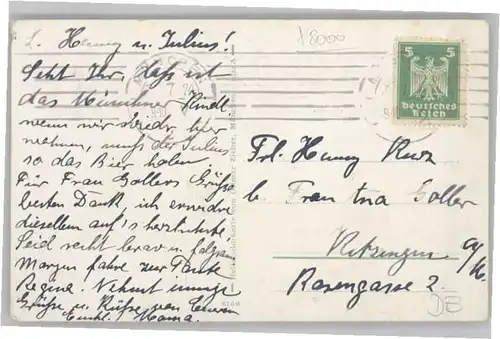 L. Henny u. Julius!
Seht Ihr, daß ist
das Münchner Kindl
wenn wir wieder hier
wohnen, muß der Julius
so das Bier holen.
Für Frau Gollers Grüße
besten Dank, ich erwidre
dieselben auf's herzlichste.
Seid recht brav u. folgsam
Morgen fahre zur Tante
Regine. Nehmt innige
Grüße u. Küsse von Eurer
Mama.
18000
5 5
Deutsches
Reich
Frl. Henny Kurz
b. Frau Goller
Kitzingen a/M.
Rosengasse 2.
DE